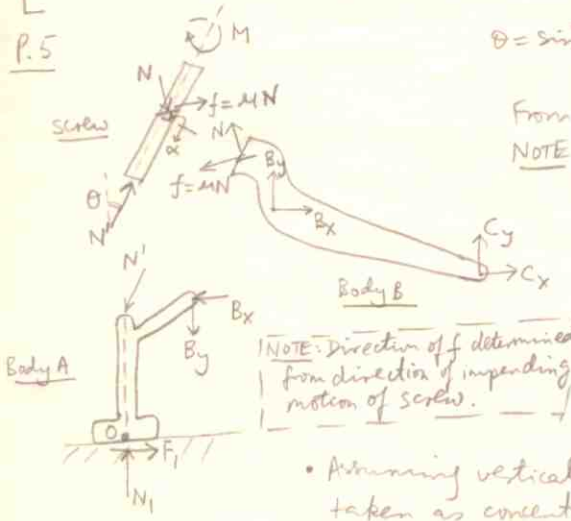 P.5
M
θ = Sin
N
f = μN
screw
α
From
NOTE
N
By
f = μN
θ
Bx
N'
Cy
Cx
N'
Body B
Bx
By
Body A
NOTE: Direction of f determined
from direction of impending
motion of screw.
O
F₁
N₁
• Assuming vertical
taken as concent